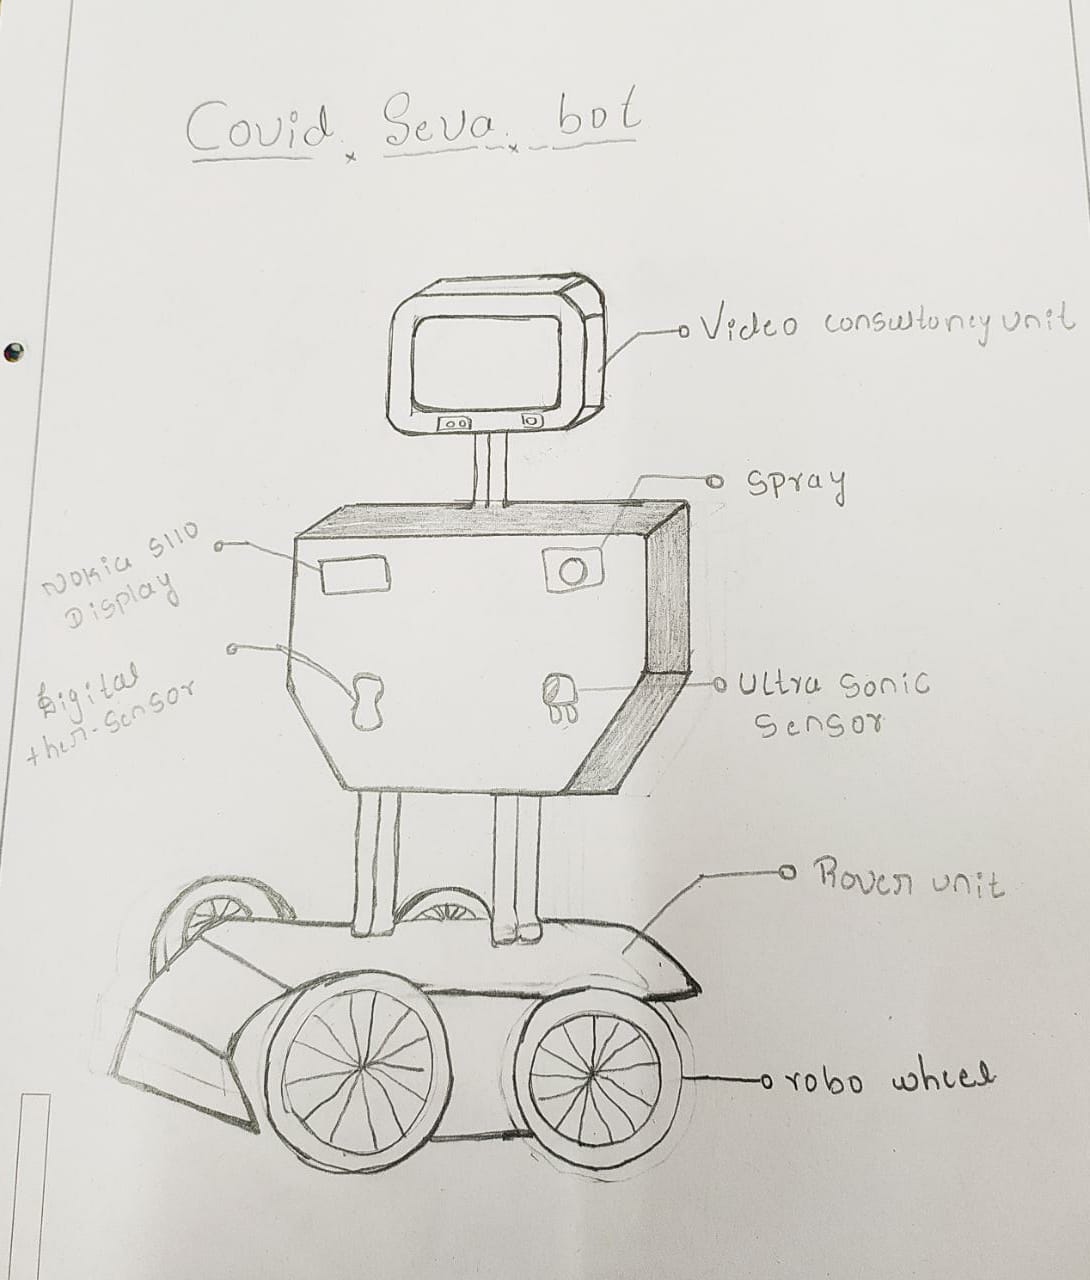 Covid Seva bot
Video consultancy unit
Spray
Nokia 5110
Display
Digital
ther-Sensor
Ultra Sonic
Sensor
Rover unit
robo wheel